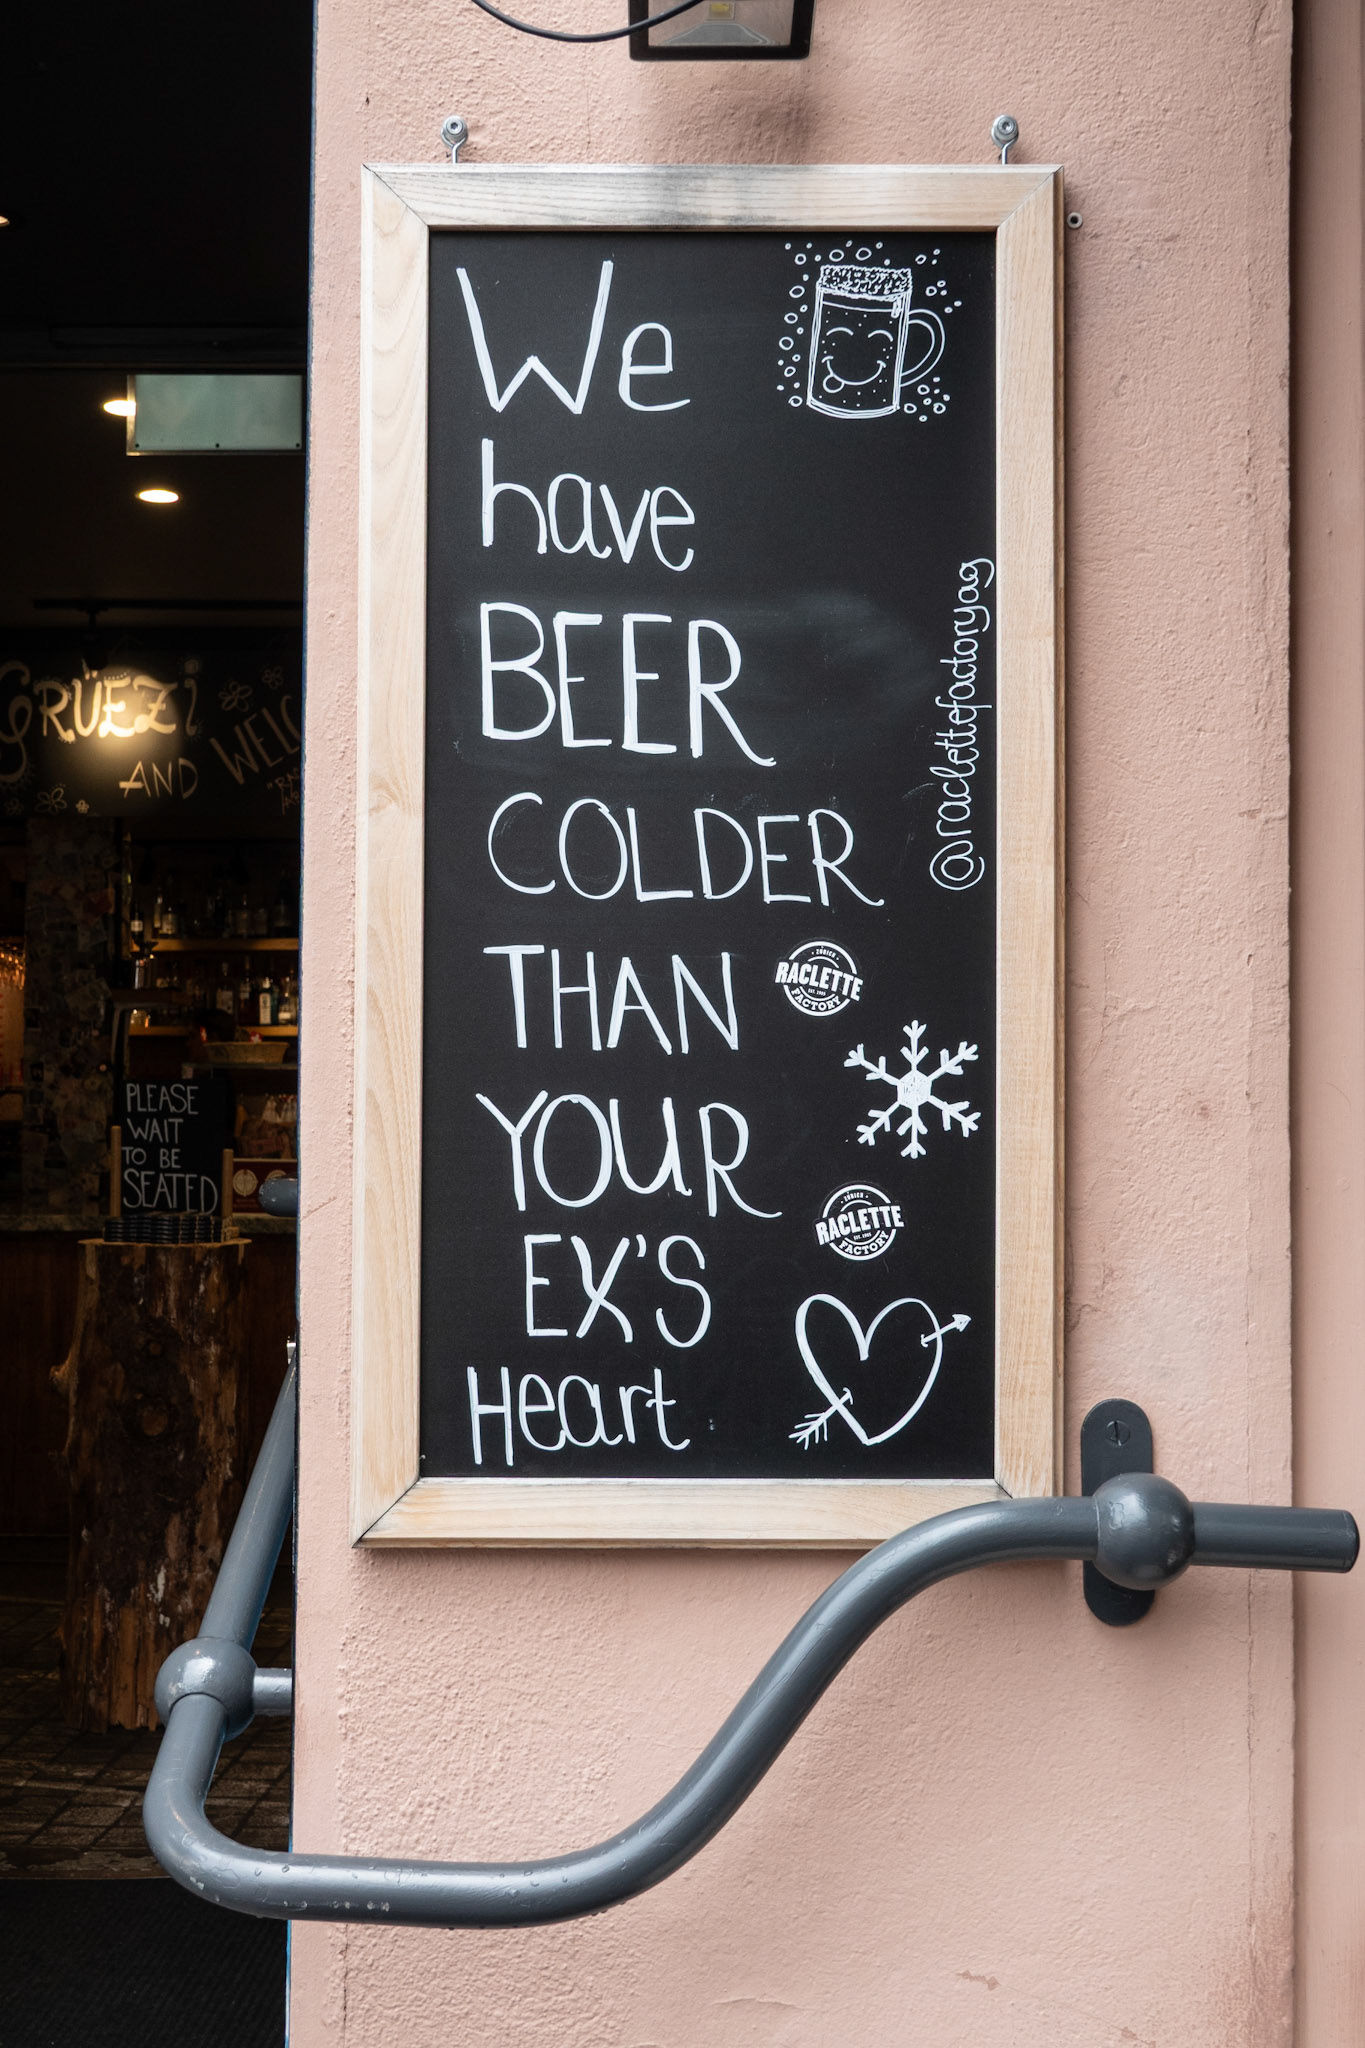 We
have
BEER
COLDER
THAN
YOUR
EX'S
Heart
@raclettefactoryag
ZÜRICH
RACLETTE
FACTORY
ZÜRICH
RACLETTE
FACTORY
GRÜEZi
AND
PLEASE
WAIT
TO BE
SEATED